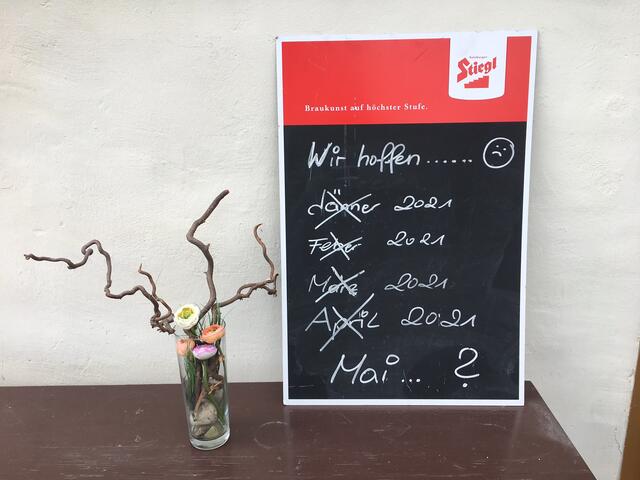 Salzburger
Stiegl
Braukunst auf höchster Stufe.
Wir hoffen......
Jänner 2021
Feber 2021
März 2021
April 2021
Mai... ?